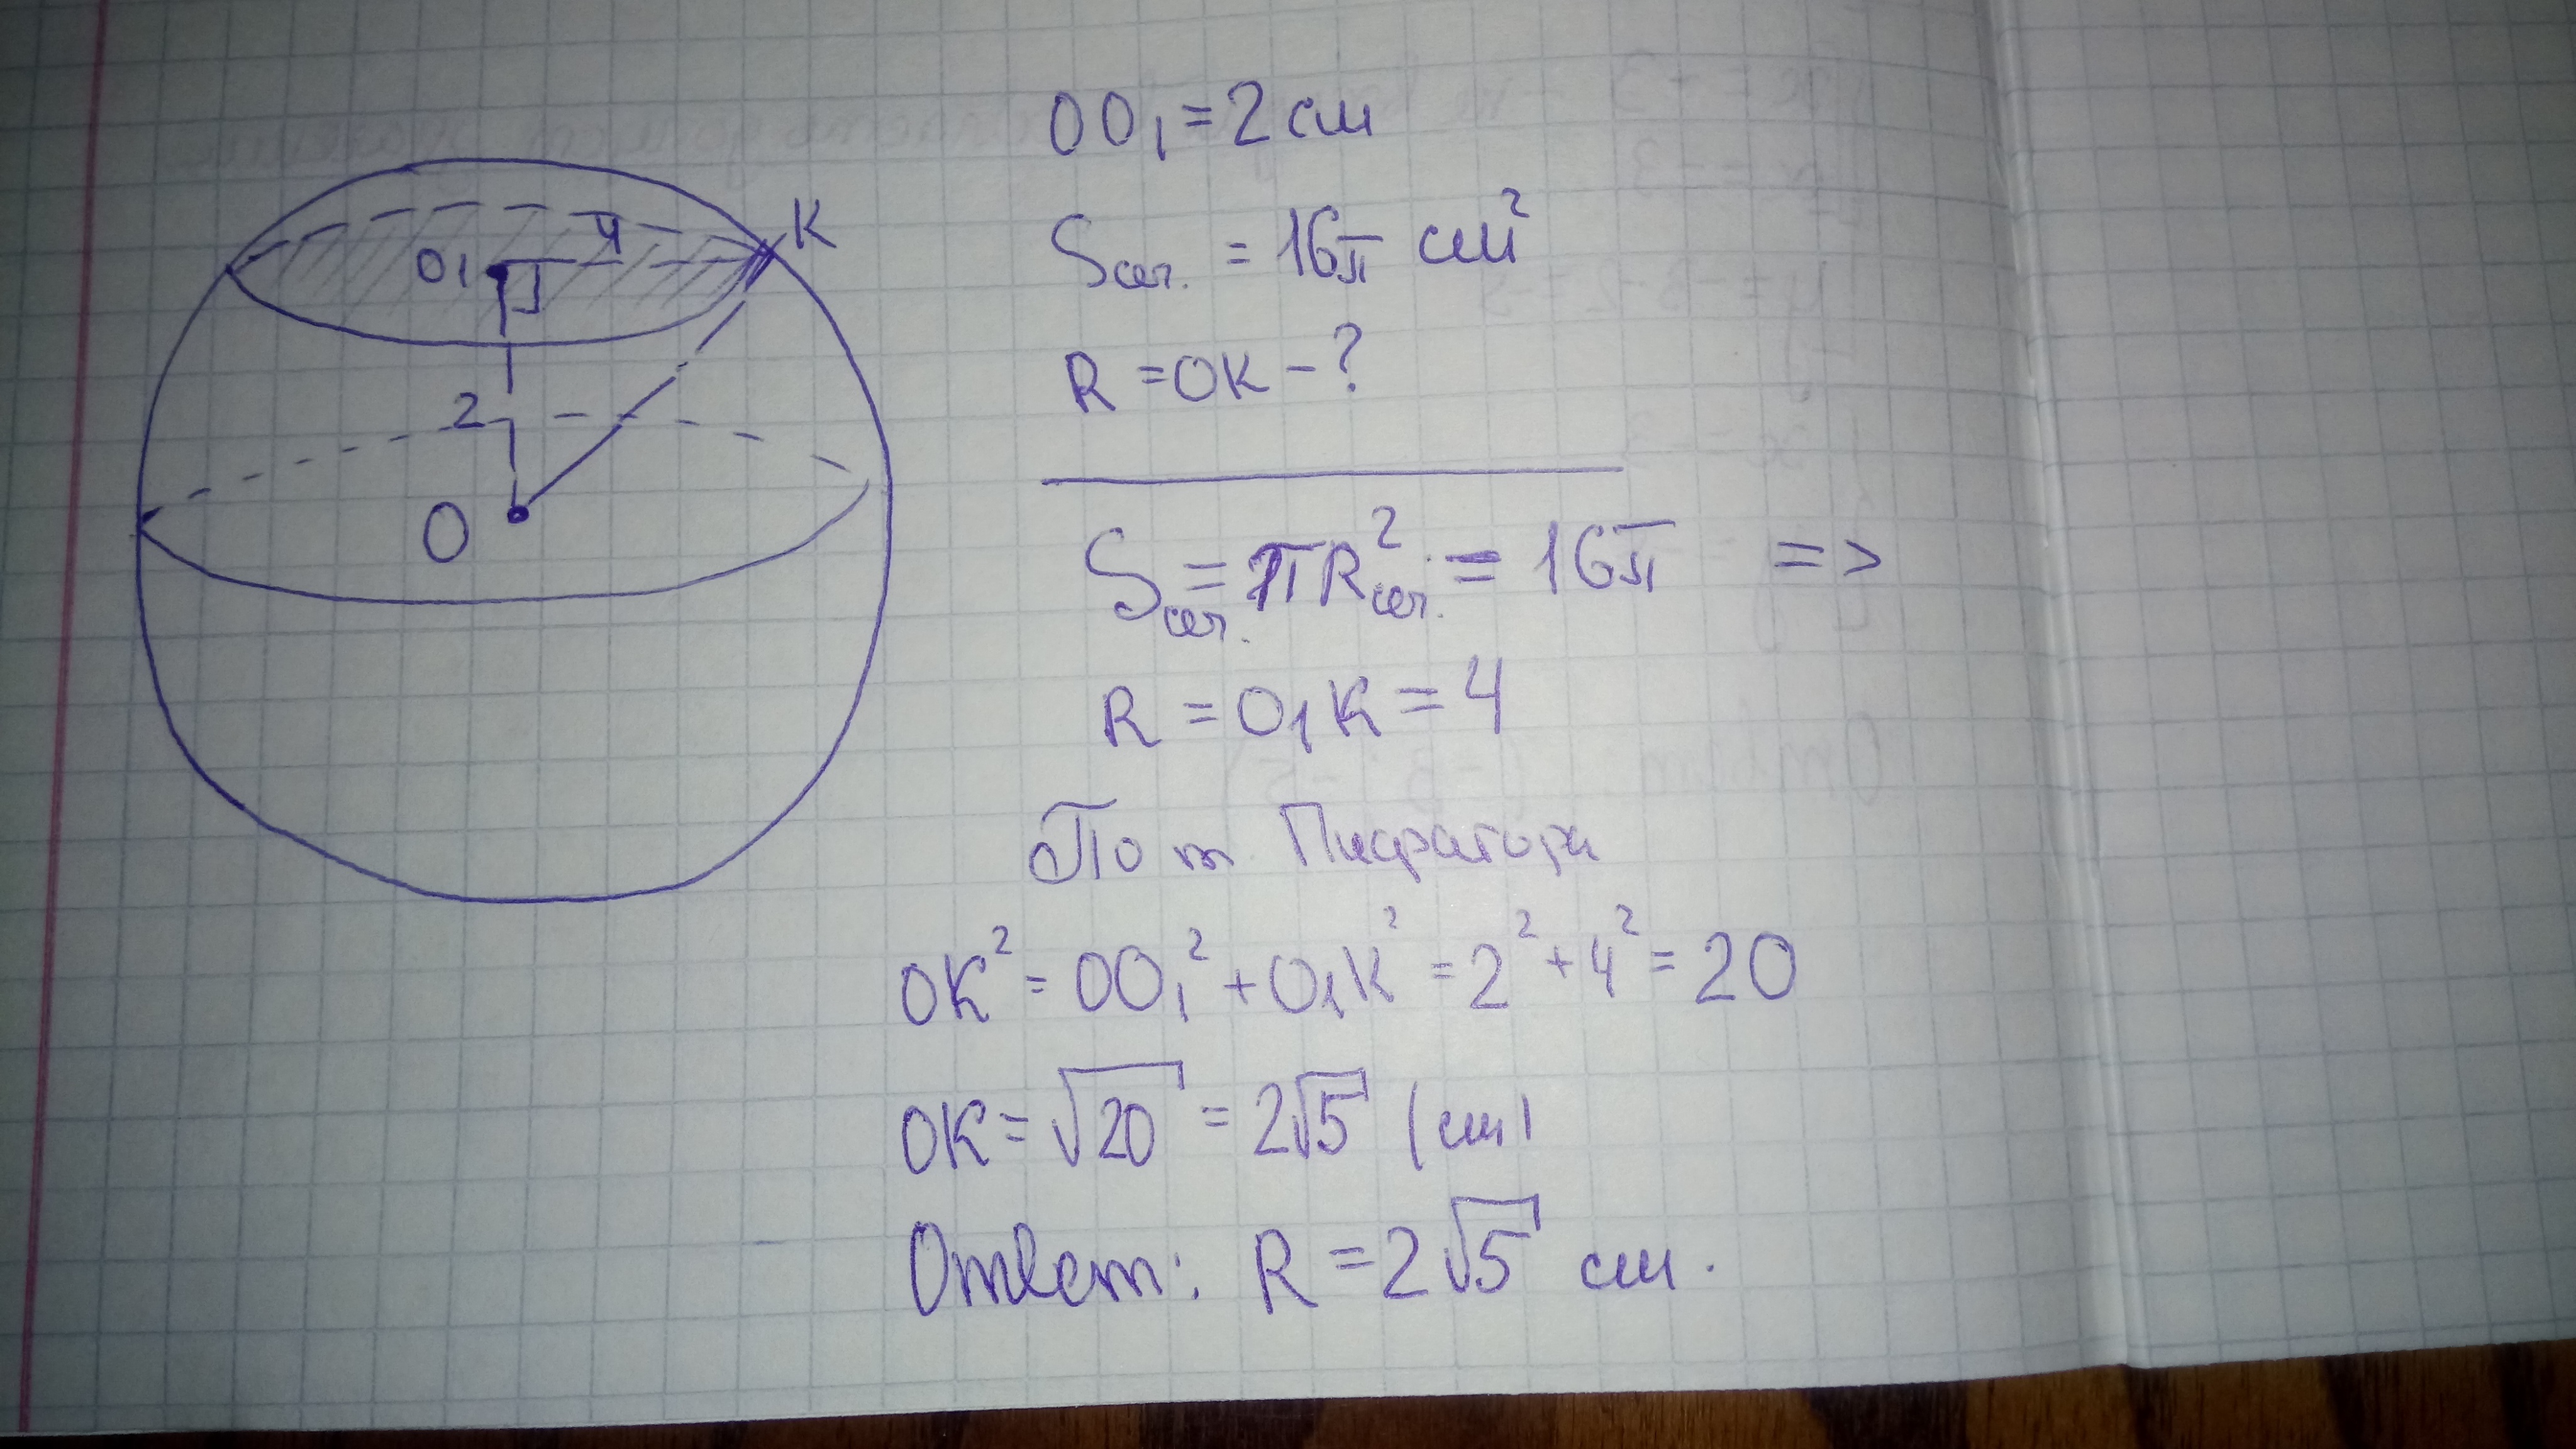 OO₁ = 2 см
Sсеч. = 16π см²
R = OK - ?
Sсеч. = πR²сеч. = 16π =>
R = O₁K = 4
По т. Пифагора
OK² = OO₁² + O₁K² = 2² + 4² = 20
OK = √20 = 2√5 (см)
Ответ: R = 2√5 см.
K
4
O₁
2
O